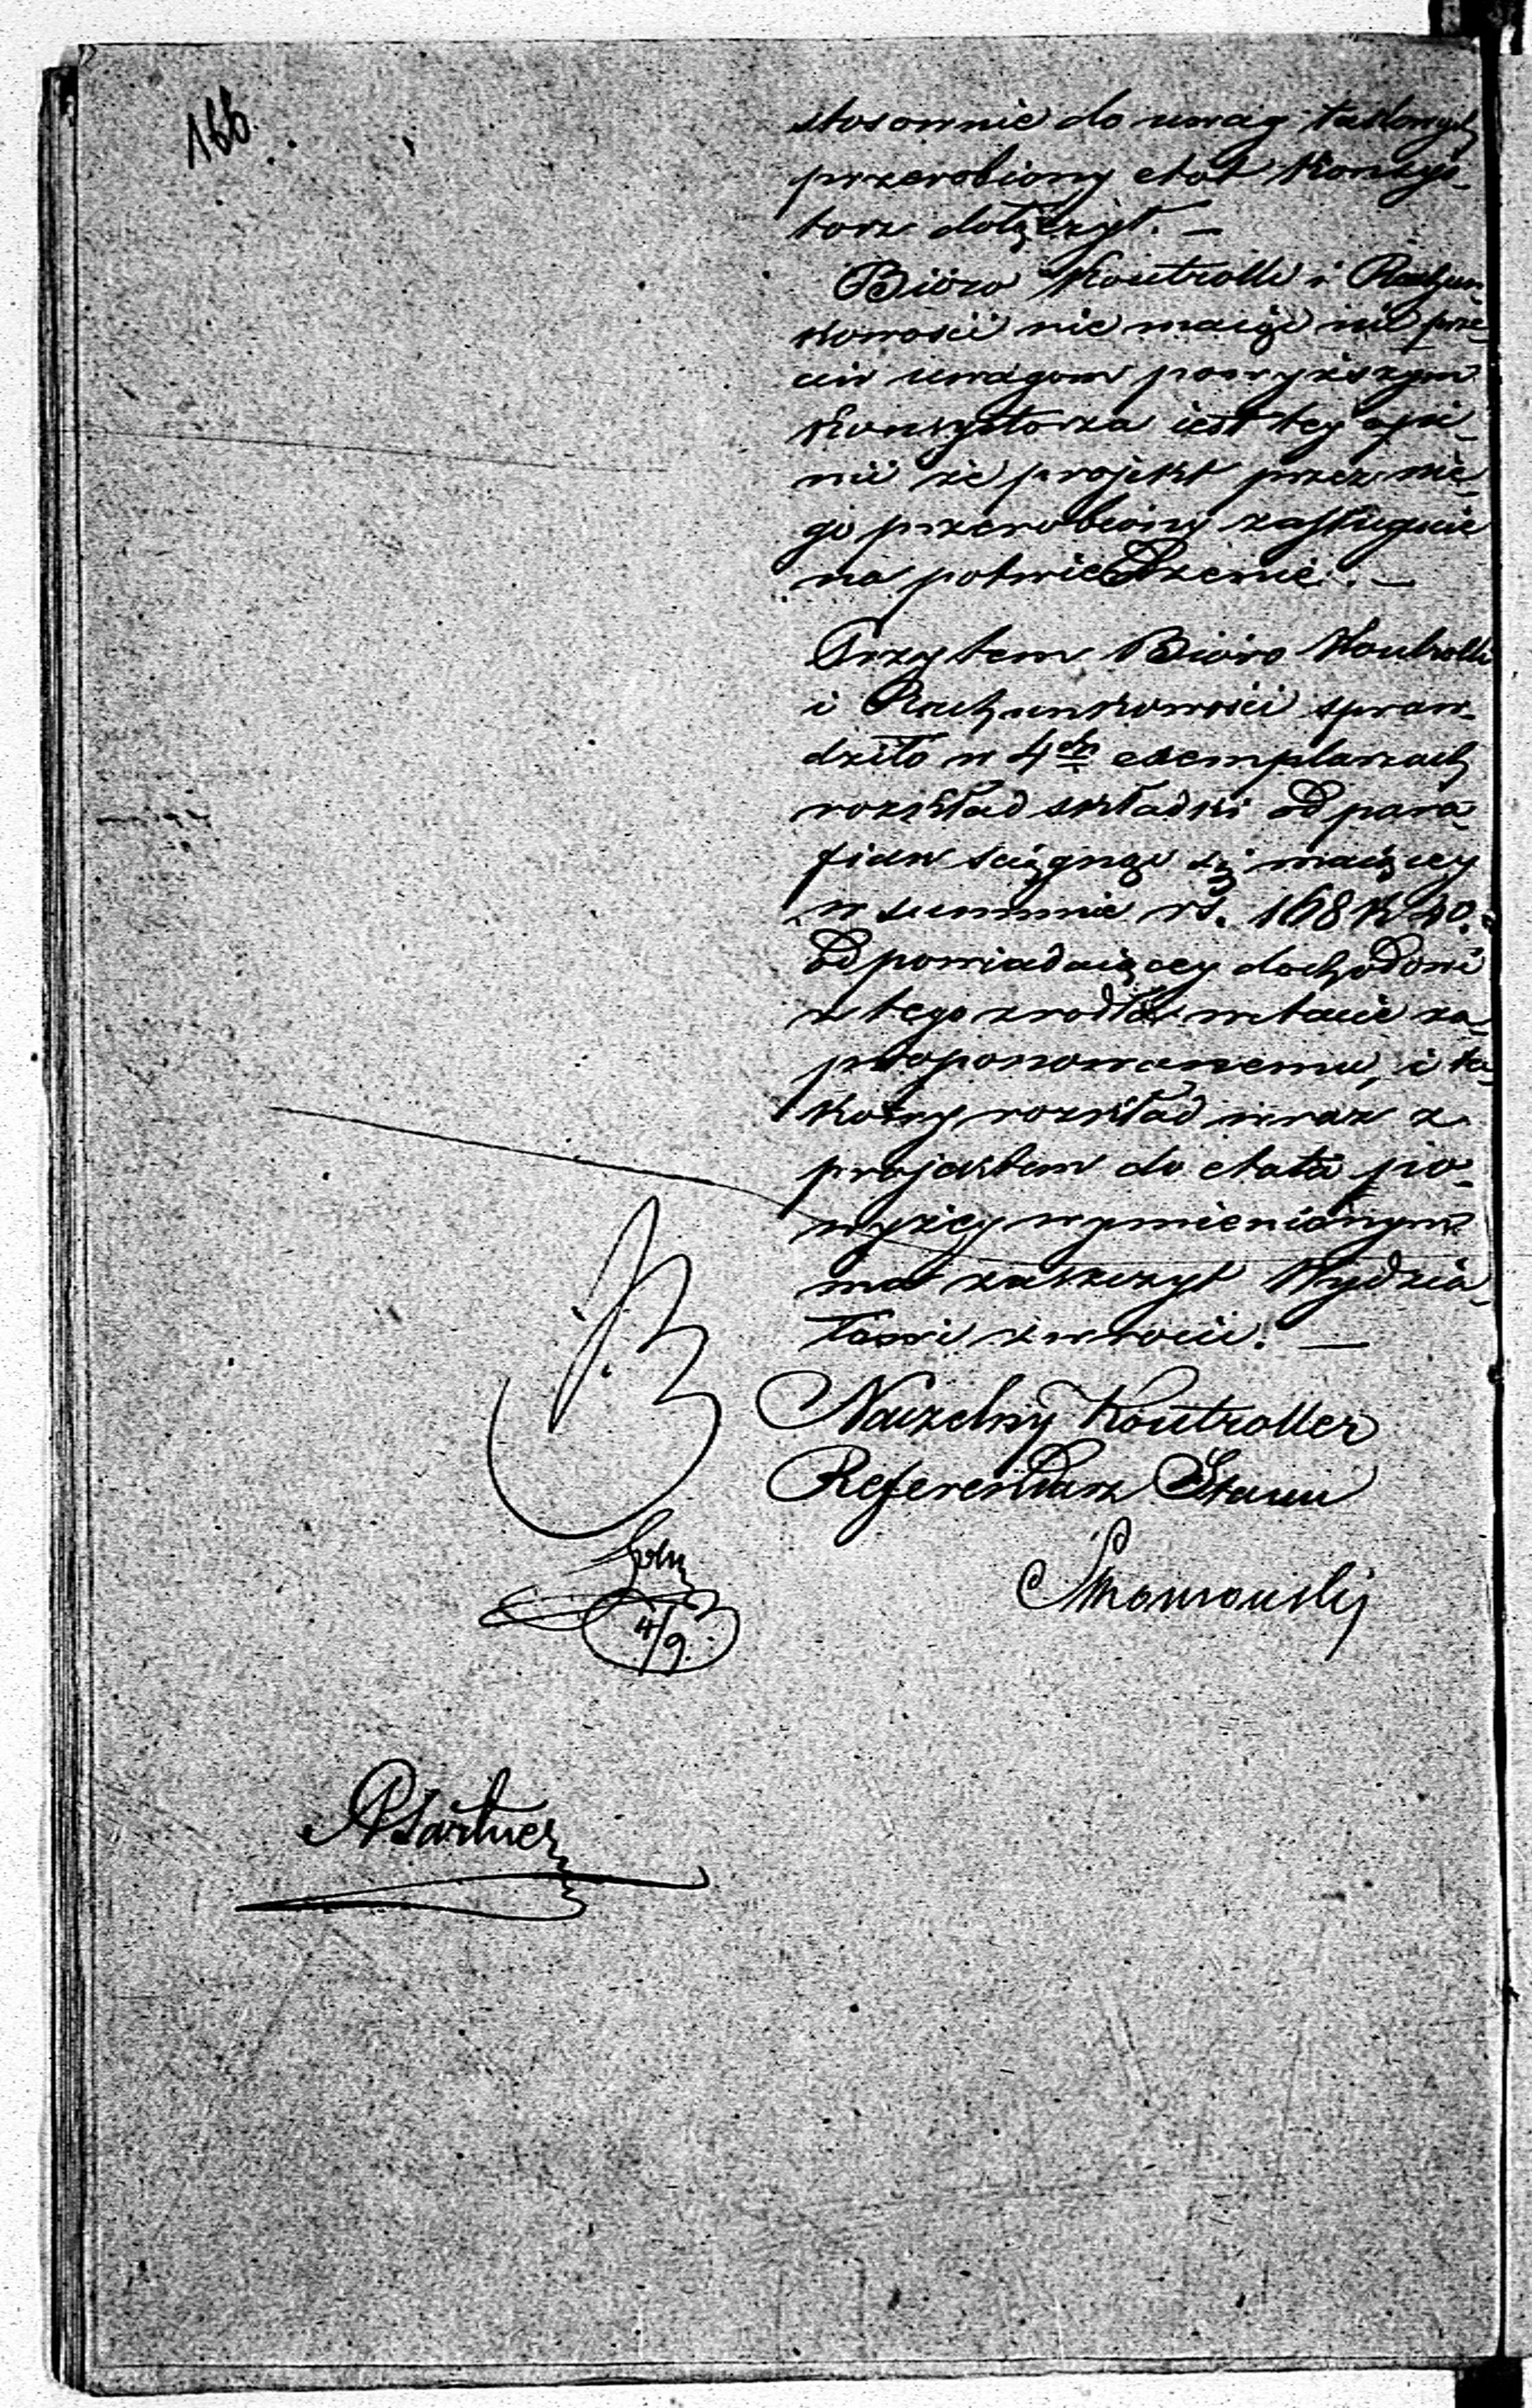 166.
stosownie do uwag takowych
przerobiony etat Konsys-
torz dołączył. —
Biöro Kontrolli i Rachun-
kowości nie maiąc nic prze-
ciw uwagom powyższym
Konsystorza iest tey opi-
nii że projekt przez nie-
go przerobiony zasługuie
na potwierdzenie. —
Przytem Biöro Kontrolli
i Rachunkowości spraw-
dziło w 4ch exemplarzach
rozkład składki od para-
fian sciągnąć się maiącey
w summie rs. 168 k 40.
odpowiadaiącey dochodowi
z tego zrodła w etacie za-
proponowanemu, i ta-
kowy rozkład wraz z
projektem do etatu po-
wyżey wymienionym
ma zaszczyt Wydzia-
łowi zwrocić. —
Naczelny Kontroller
Referendarz Stanu
4/9.